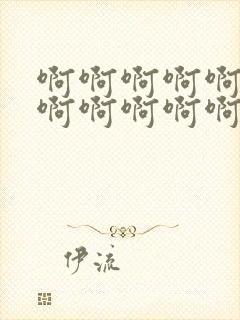 啊啊啊啊啊
啊啊啊啊啊
伊流